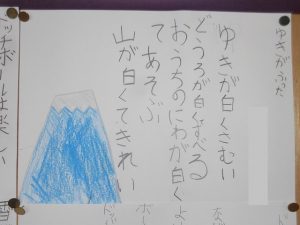 ゆきがふった
ゆきが白くさむい
どうろが白くすべる
おうちのにわが白く
てあそぶ
山が白くてきれい